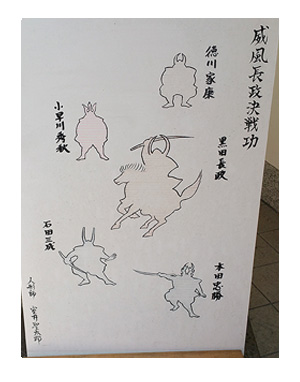 威風長政決戦功
徳川家康
小早川秀秋
黒田長政
石田三成
本田忠勝
人形師